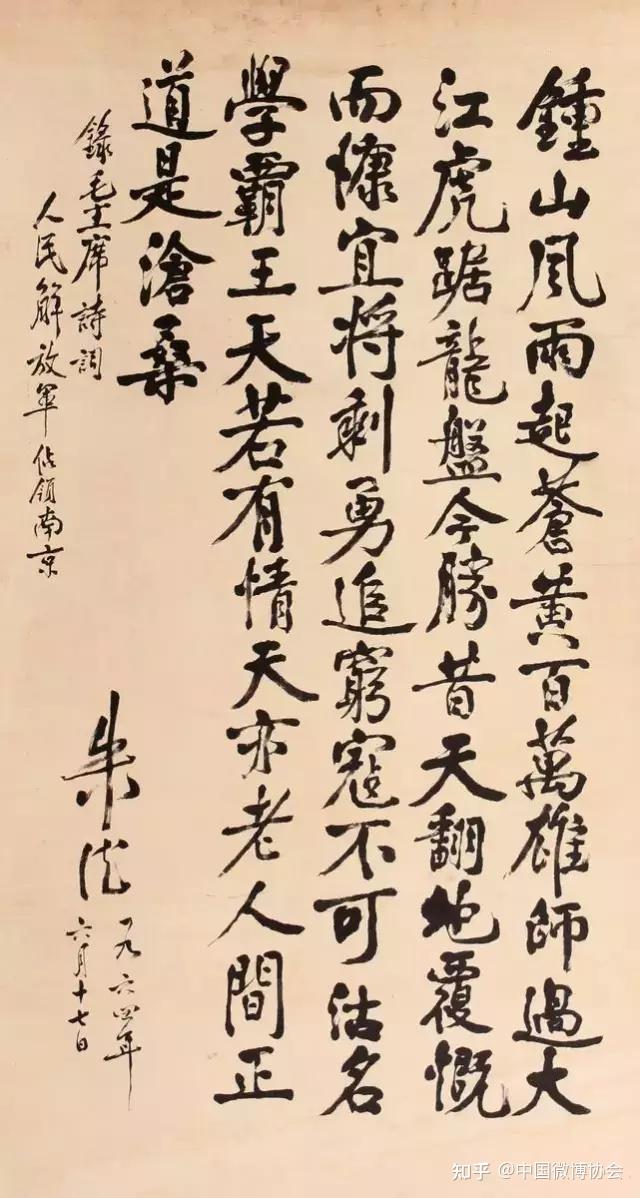 鍾山風雨起蒼黃百萬雄師過大
江虎踞龍盤今勝昔天翻地覆慨
而慷宜将剩勇追窮寇不可沽名
學霸王天若有情天亦老人間正
道是滄桑
錄毛主席詩詞
人民解放軍佔領南京
朱德
一九六四年
六月十七日
知乎 @中国微博协会